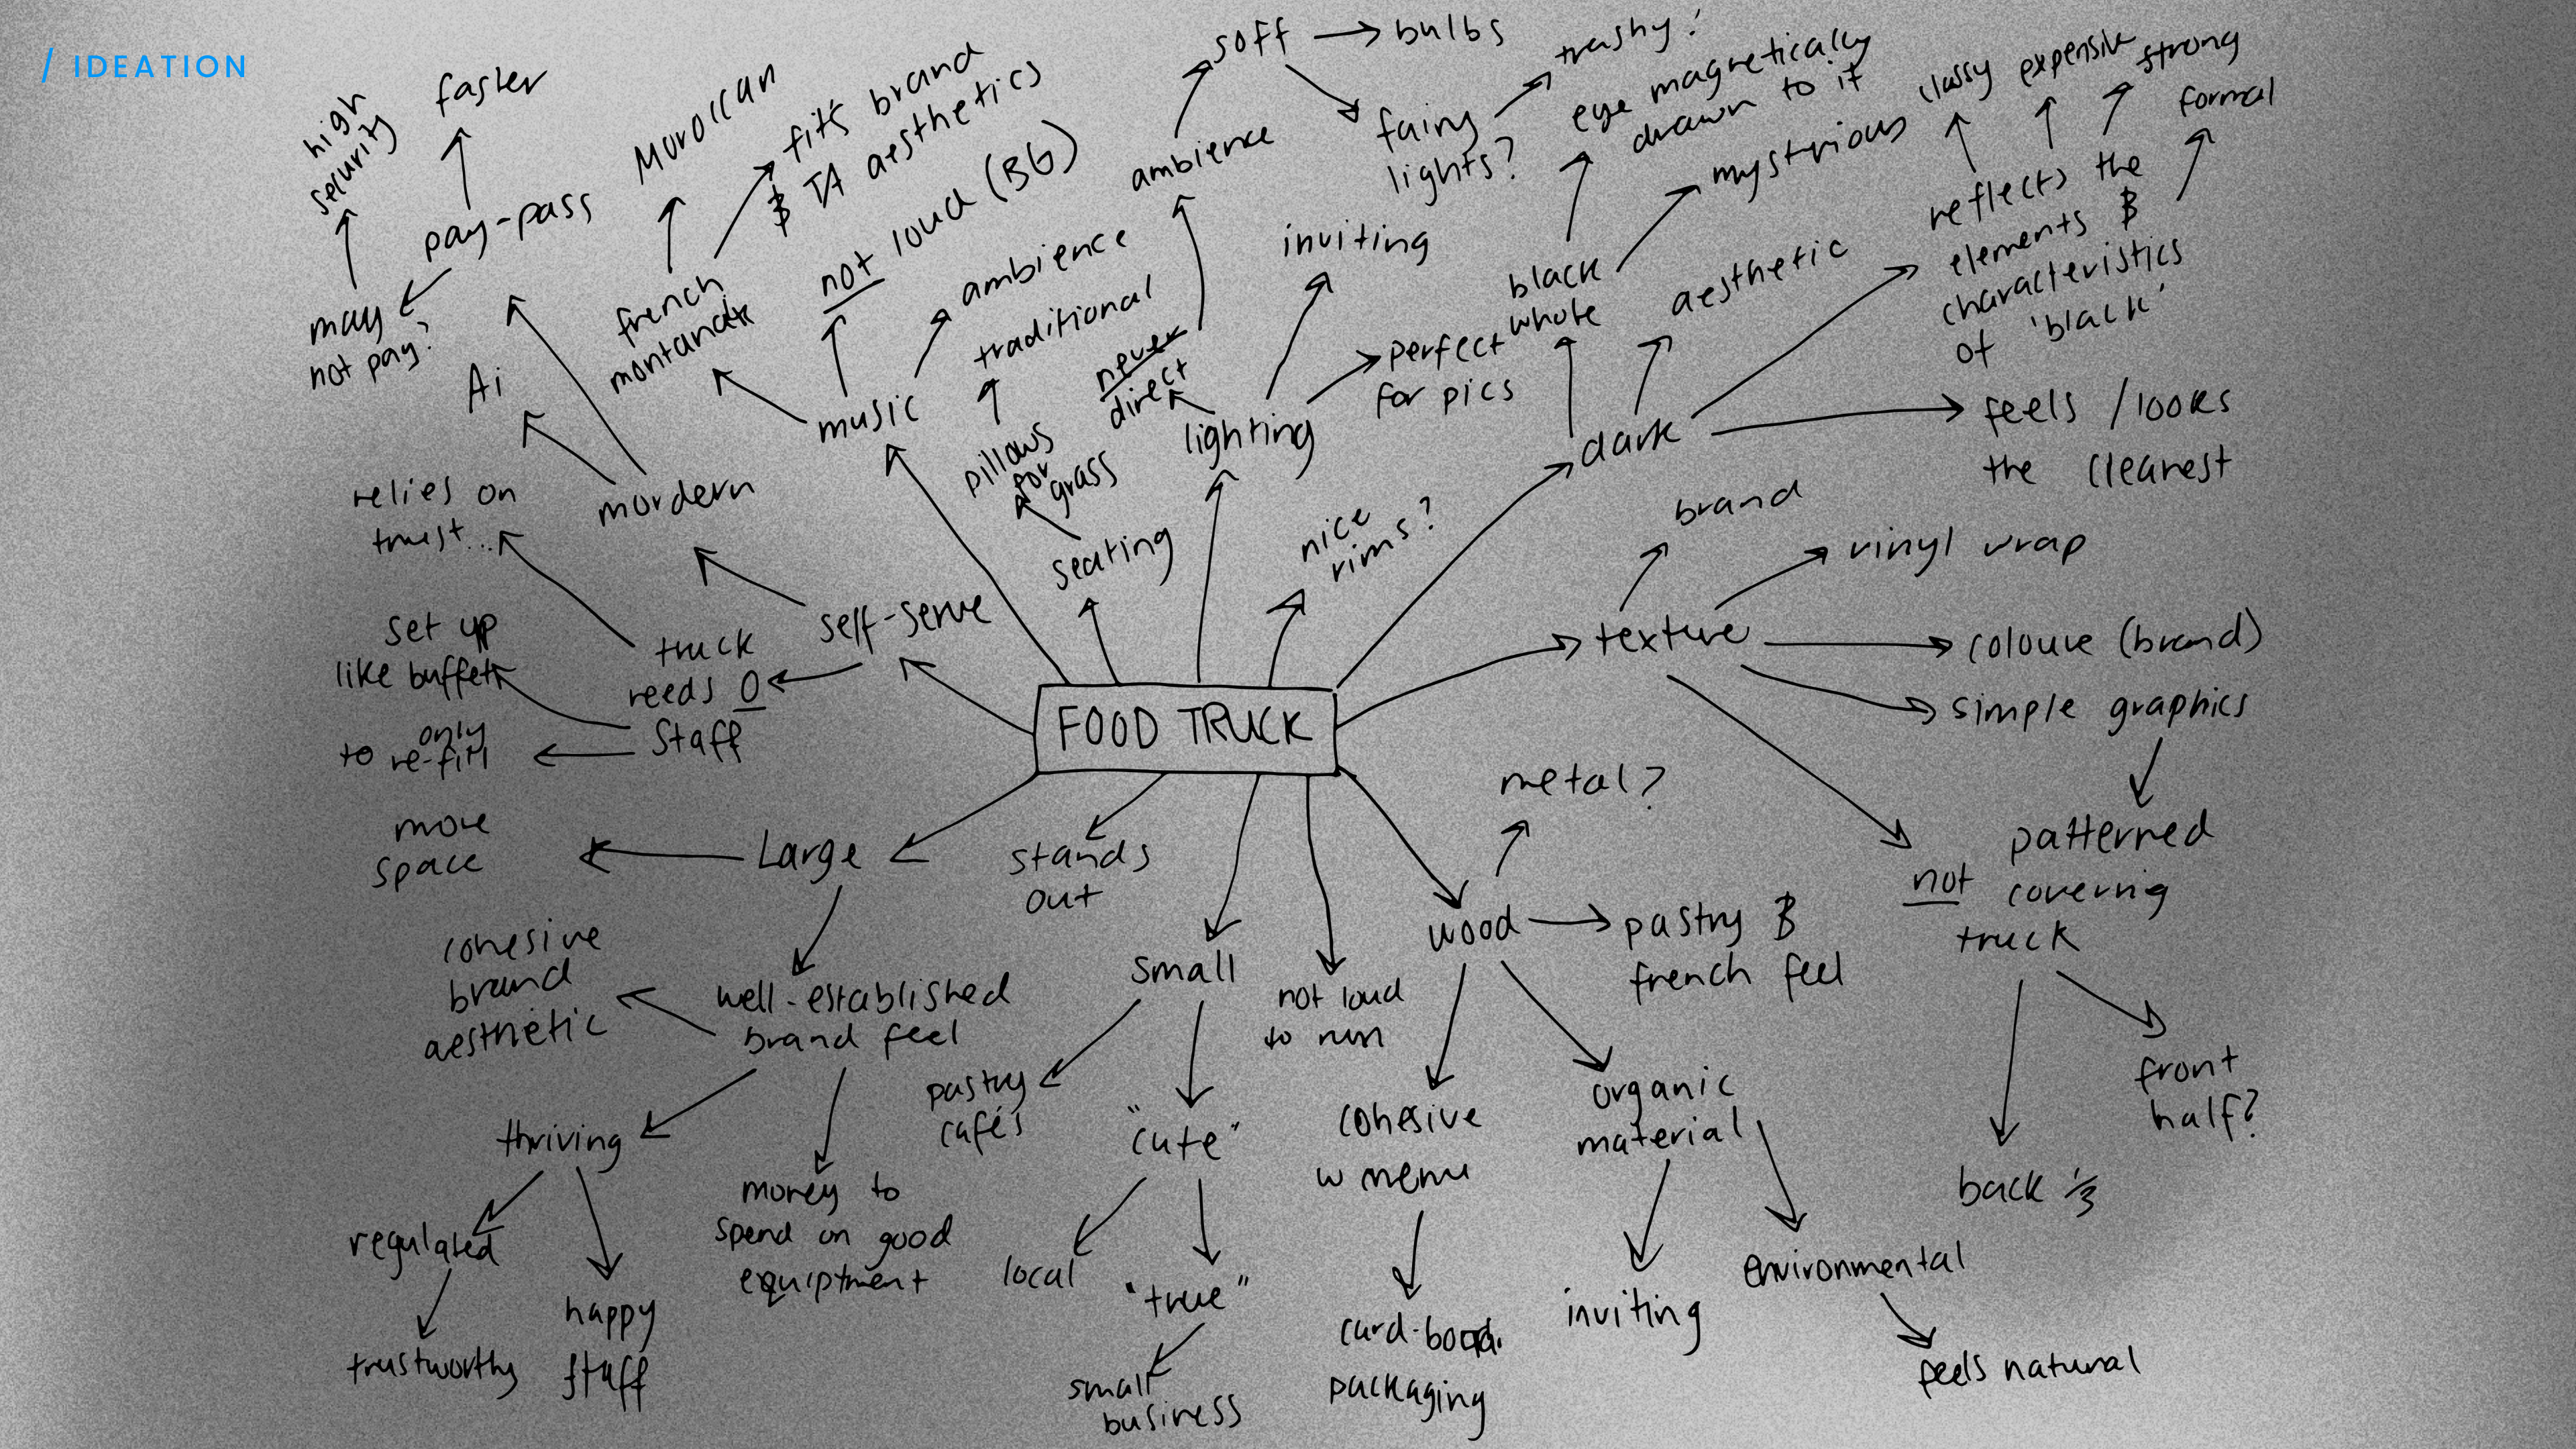 / IDEATION
high
security
faster
pay-pass
may
not pay?
Ai
mordern
Moroccan
fits brand
& TA aesthetics
french
montana
not loud (BG)
ambience
music
traditional
pillows
for
grass
seating
soft
bulbs
ambience
fairy
lights?
trashy?
inviting
never
direct
lighting
perfect
for pics
nice
rims?
eye magnetically
drawn to it
mysterious
black
whole
aesthetic
dark
classy
expensive
strong
formal
reflects the
elements &
characteristics
of 'black'
feels / looks
the cleanest
relies on
trust...
set up
like buffet
only
to re-fill
truck
needs 0
staff
self-serve
FOOD TRUCK
texture
brand
vinyl wrap
colour (brand)
simple graphics
patterned
not covering
truck
front
half?
back 1/3
more
space
Large
stands
out
well-established
brand feel
cohesive
brand
aesthetic
thriving
regulated
trustworthy
happy
staff
money to
spend on good
equiptment
small
pastry
cafés
"cute"
local
"true"
small
business
not loud
to run
metal?
wood
pastry &
french feel
cohesive
w menu
card-board
packaging
organic
material
inviting
environmental
feels natural